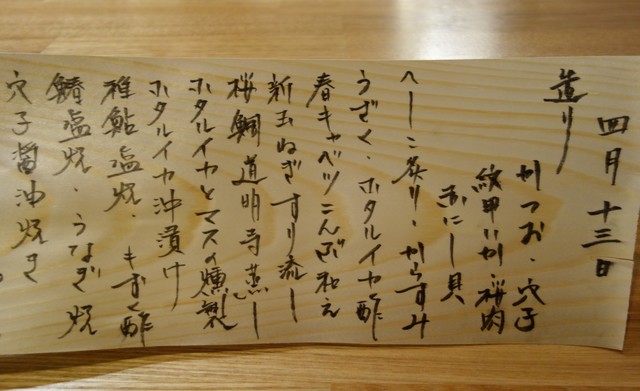 四月十三日
造り
かつお、穴子
紋甲いか、桜肉
あにし貝
へしこ炙り、からすみ
うざく、ホタルイカ酢
春キャベツこんぶ和え
新玉ねぎすり流し
桜鯛道明寺蒸し
ホタルイカとマスの燻製
ホタルイカ沖漬け
稚鮎塩焼、もずく酢
鰆塩焼、うなぎ焼
穴子醤油焼き